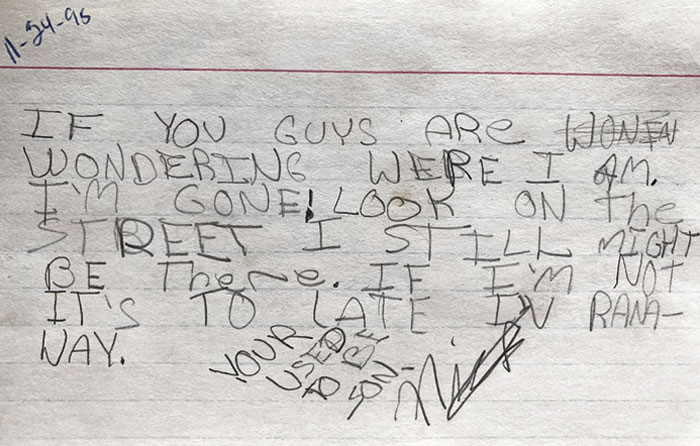 11-24-95
IF YOU GUYS ARE WONEN
WONDERING WERE I AM.
I'M GONE! LOOK ON The
STREET I STILL MIGHT
BE TheRe. IF I'M NOT
IT'S TO LATE IV RANA-
WAY.
YOUR
USED
TO BE
SON-
Nick